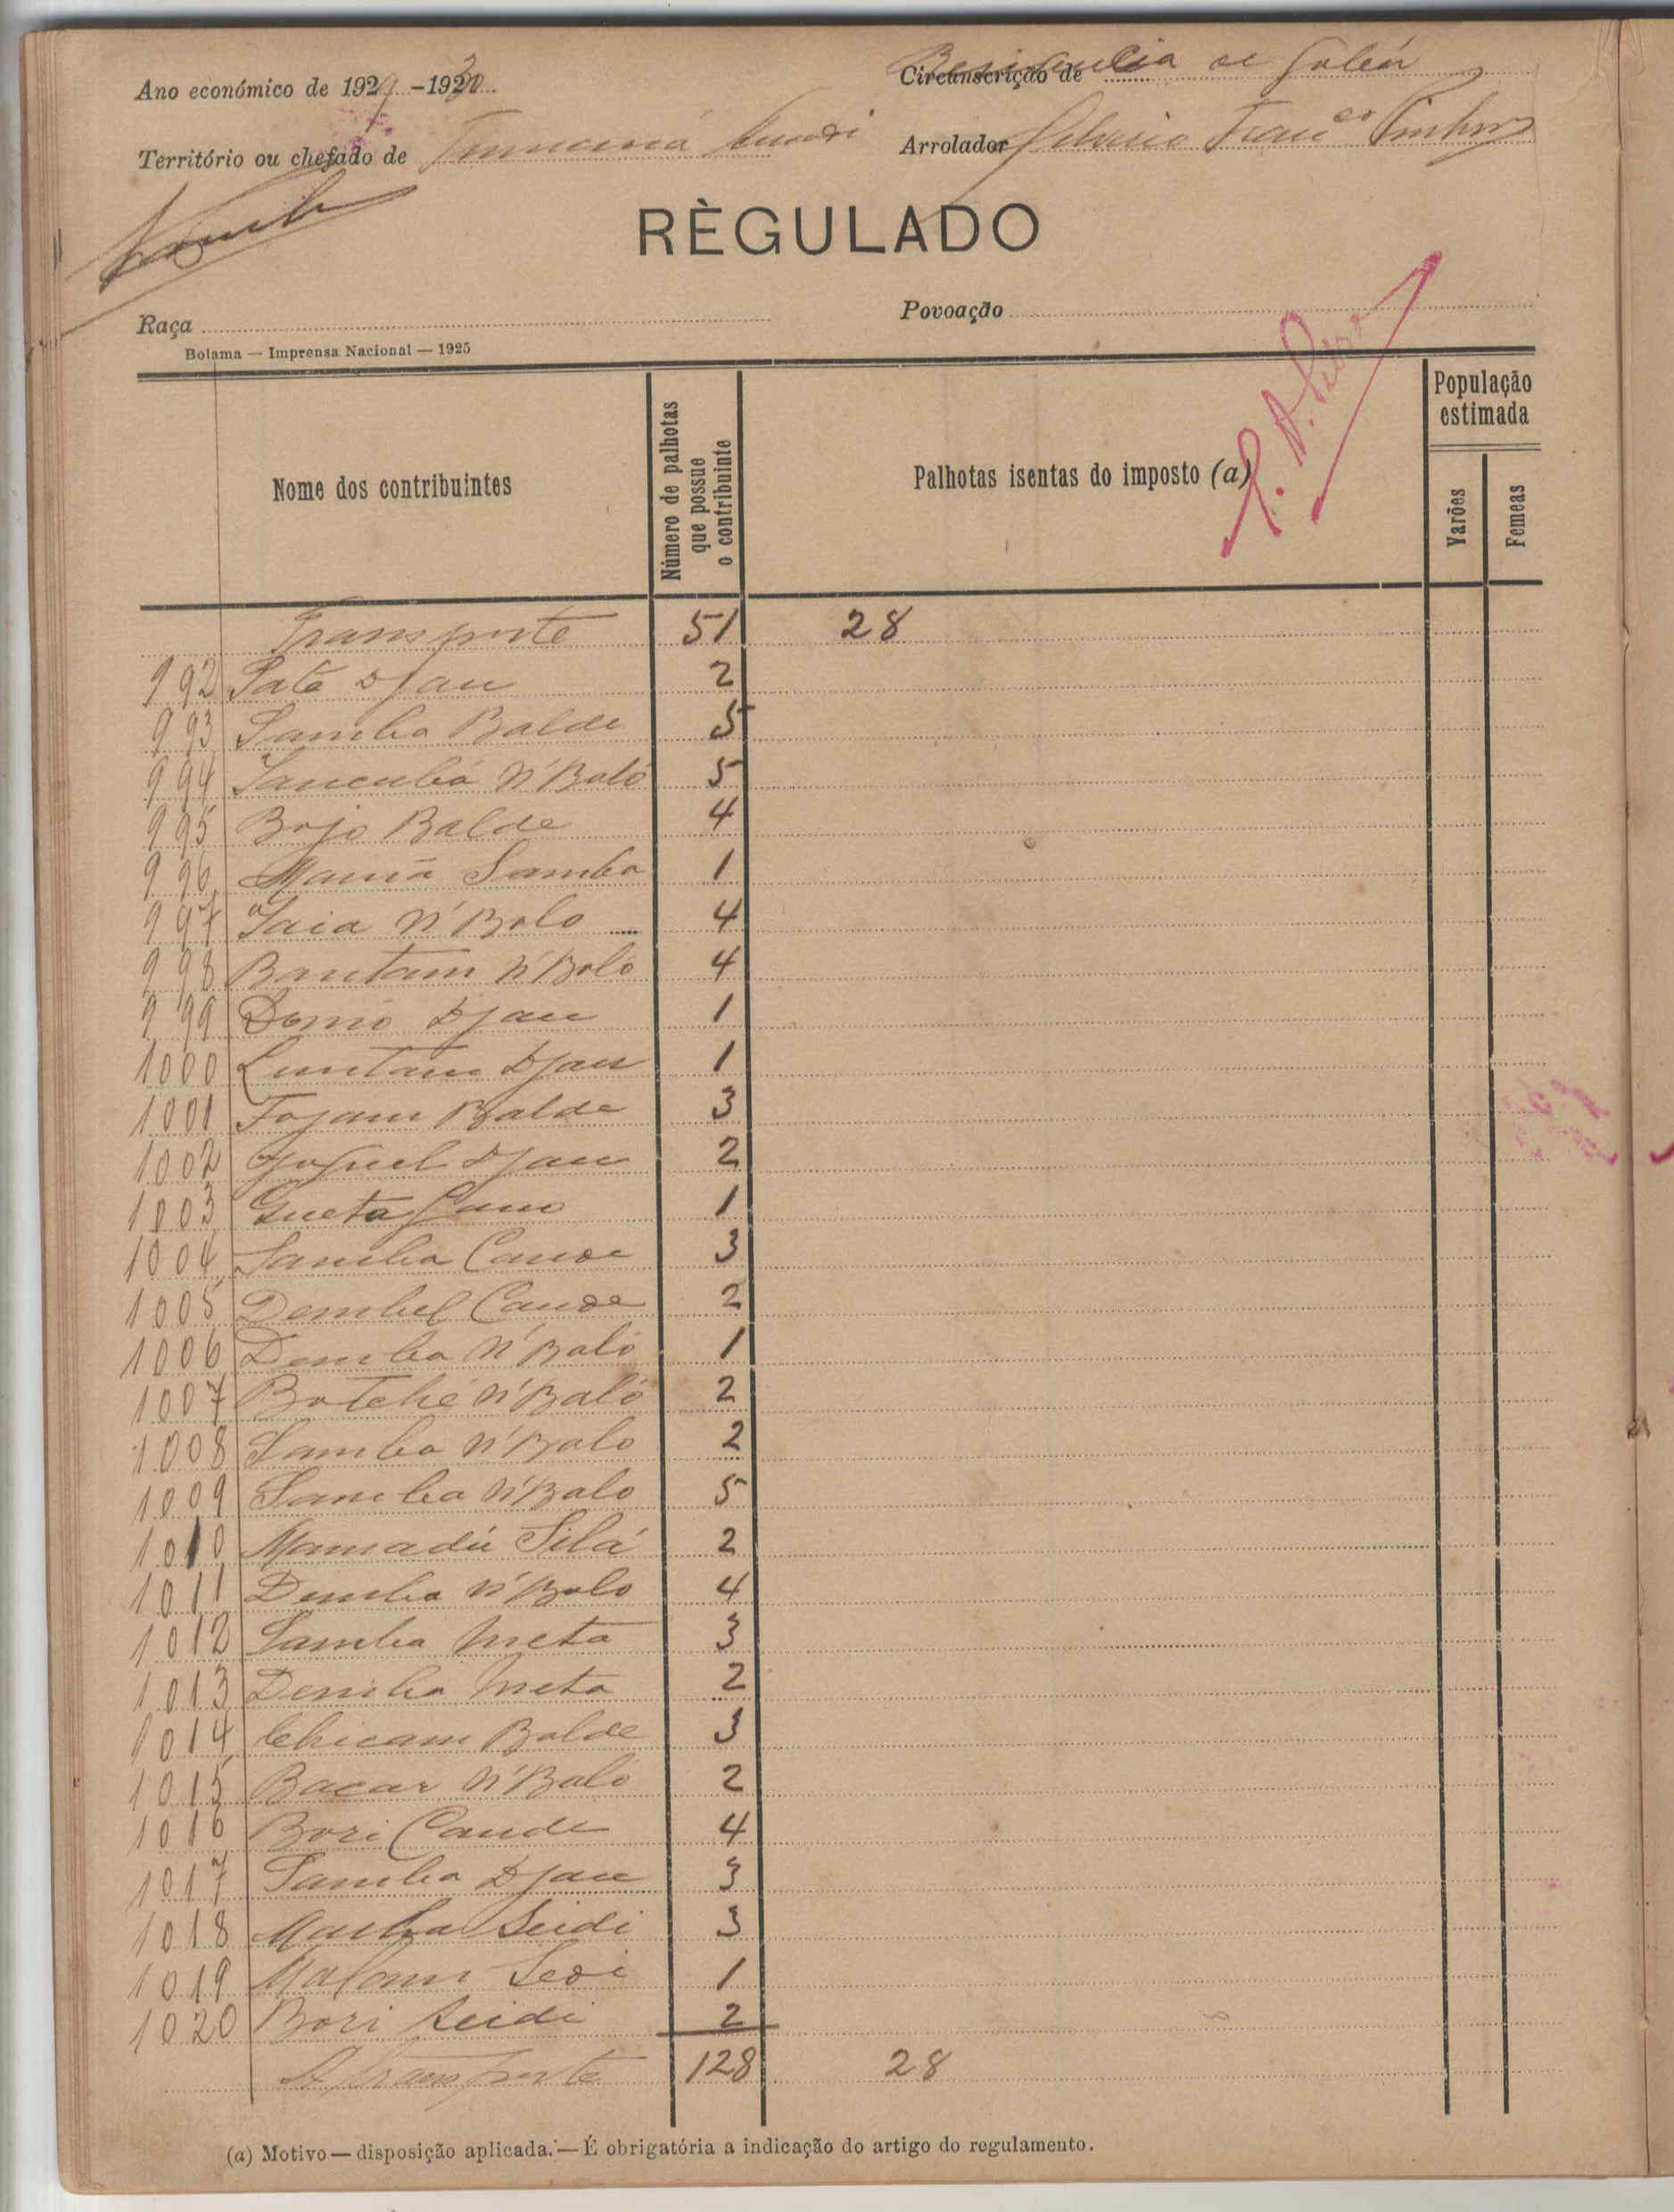 Ano económico de 1929-1930
Circunscrição de Residencia de
Território ou chefado de
Arrolador
RÈGULADO
Raça
Povoação
Bolama — Imprensa Nacional — 1925
Nome dos contribuintes
Número de palhotas que possue o contribuinte
Palhotas isentas do imposto (a)
População estimada
Varões
Femeas
Transporte 51 28
992 Patê Djau 2
993 Samba Balde 5
994 N'Baló 5
995 Bojo Balde 4
996 Samba 1
997 Iaia N'Balo 4
998 Bantam N'Baló 4
999 Djau 1
1000 Djau 1
1001 Balde 3
1002 Djau 2
1003 1
1004 Samba Cande 3
1005 Dembel Cande 2
1006 Demba N'Baló 1
1007 Botché N'Baló 2
1008 Samba N'Balo 2
1009 Samba N'Balo 5
1010 Mamadú Silá 2
1011 Demba N'Balo 4
1012 Samba 3
1013 Demba 2
1014 Chicam Balde 3
1015 Bacar N'Baló 2
1016 Bori Cande 4
1017 Samba Djau 3
1018 Seidi 3
1019 1
1020 Bori Seidi 2
A transporte 128 28
(a) Motivo — disposição aplicada. — É obrigatória a indicação do artigo do regulamento.